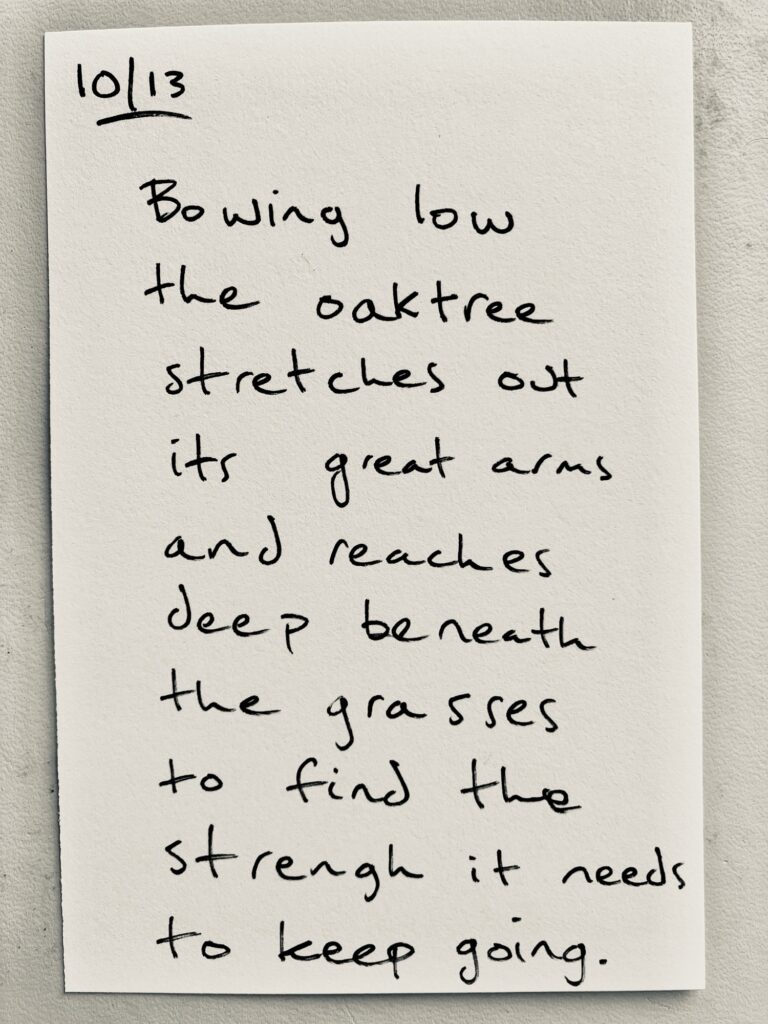 10/13
Bowing low
the oaktree
stretches out
its great arms
and reaches
deep beneath
the grasses
to find the
strengh it needs
to keep going.